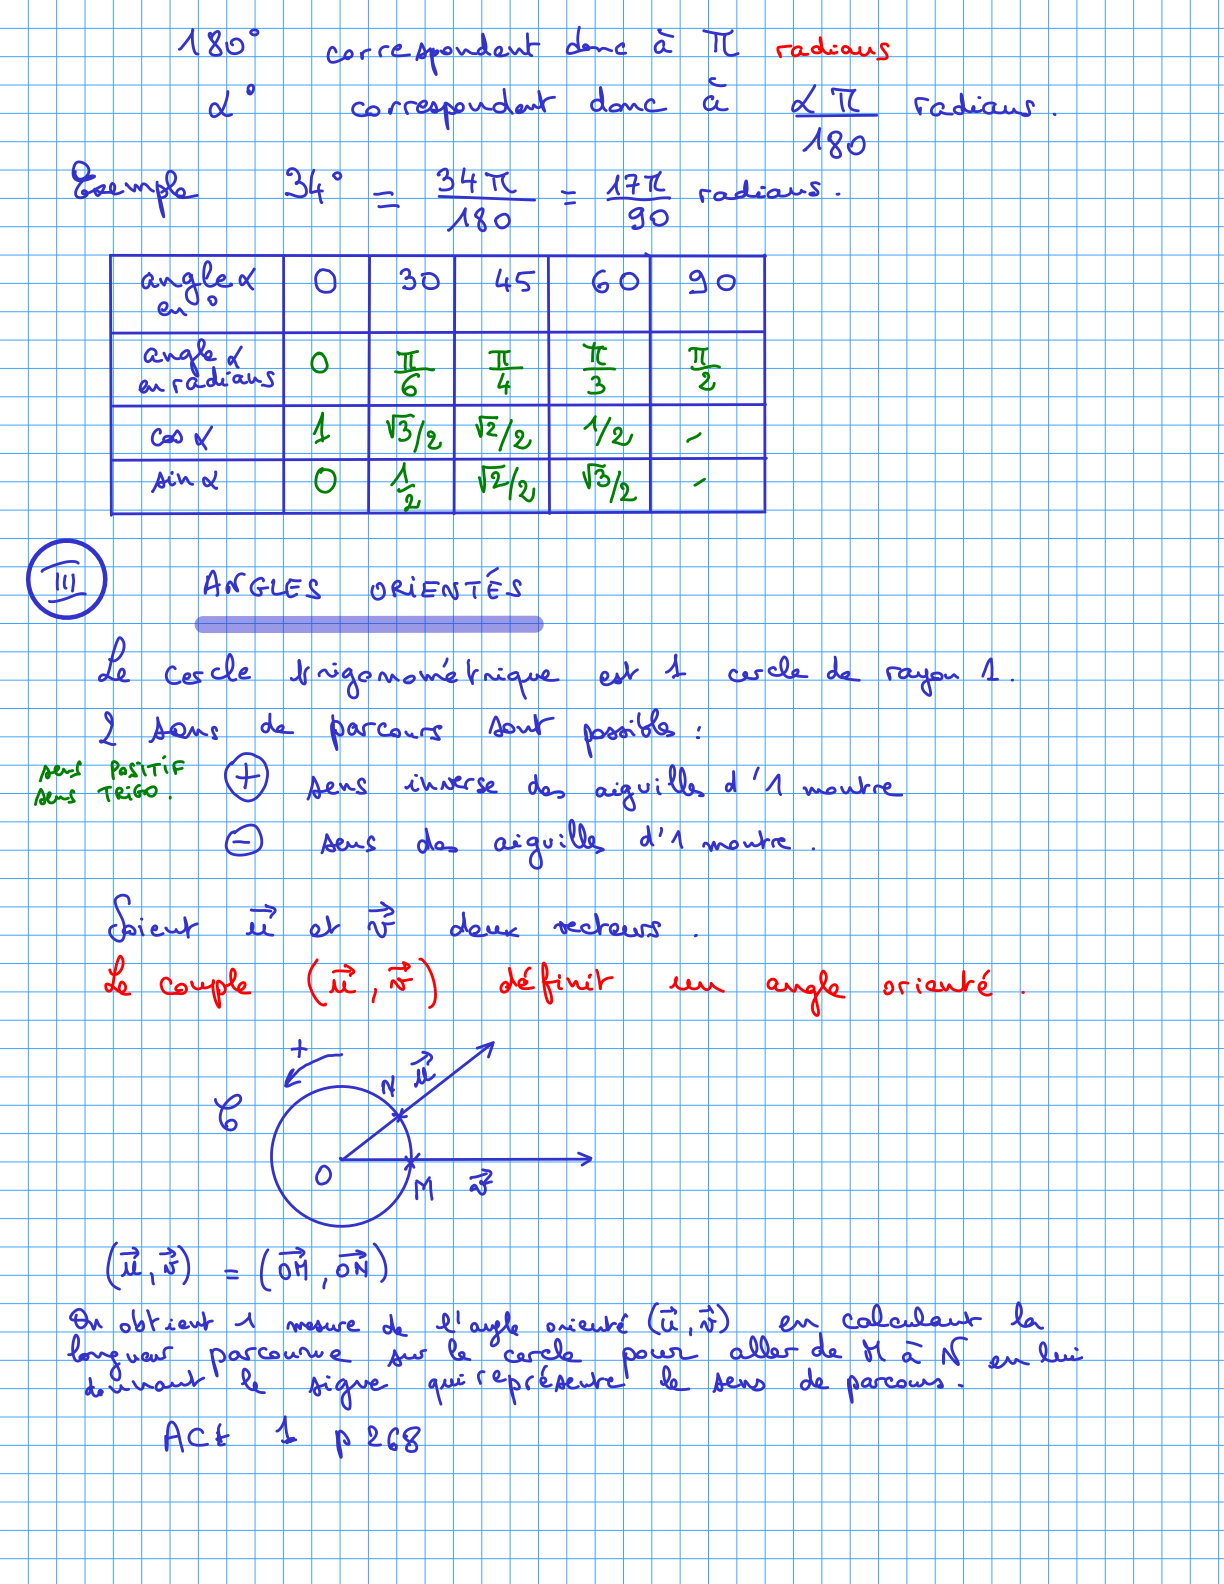 180° correspondent donc à π radians
α° correspondent donc à απ/180 radians.
Exemple 34° = 34π/180 = 17π/90 radians.
angle α en ° 0 30 45 60 90
angle α en radians 0 π/6 π/4 π/3 π/2
cos α 1 √3/2 √2/2 1/2 -
sin α 0 1/2 √2/2 √3/2 -
III ANGLES ORIENTÉS
Le cercle trigonométrique est 1 cercle de rayon 1.
2 sens de parcours sont possibles :
sens POSITIF
sens TRIGO.
+ sens inverse des aiguilles d'1 montre
- sens des aiguilles d'1 montre.
Soient u⃗ et v⃗ deux vecteurs.
Le couple (u⃗, v⃗) définit un angle orienté.
+
N u⃗
C
O
M v⃗
(u⃗, v⃗) = (OM⃗, ON⃗)
On obtient 1 mesure de l'angle orienté (u⃗, v⃗) en calculant la
longueur parcourue sur le cercle pour aller de M à N en lui
donnant le signe qui représente le sens de parcours.
Act 1 p 268